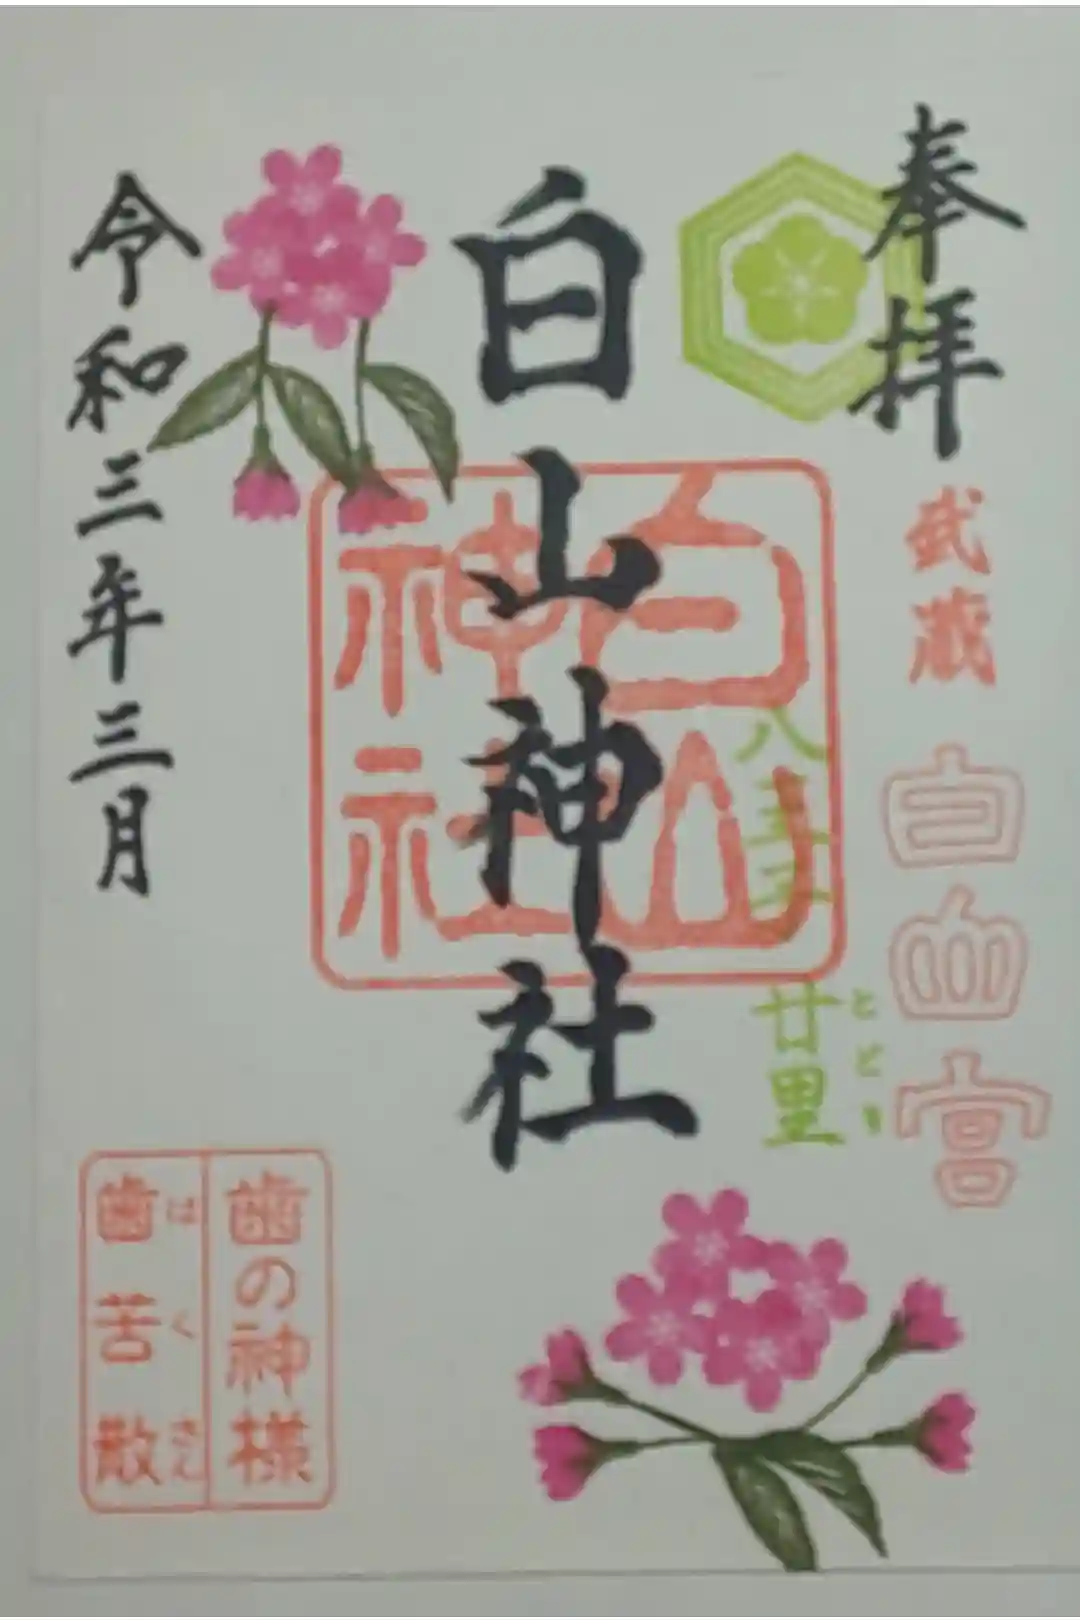 奉拝
武蔵
白山宮
とどり
廿里
八王子
白山神社
白山
神社
令和三年三月
歯の神様
はくさん
歯苦散